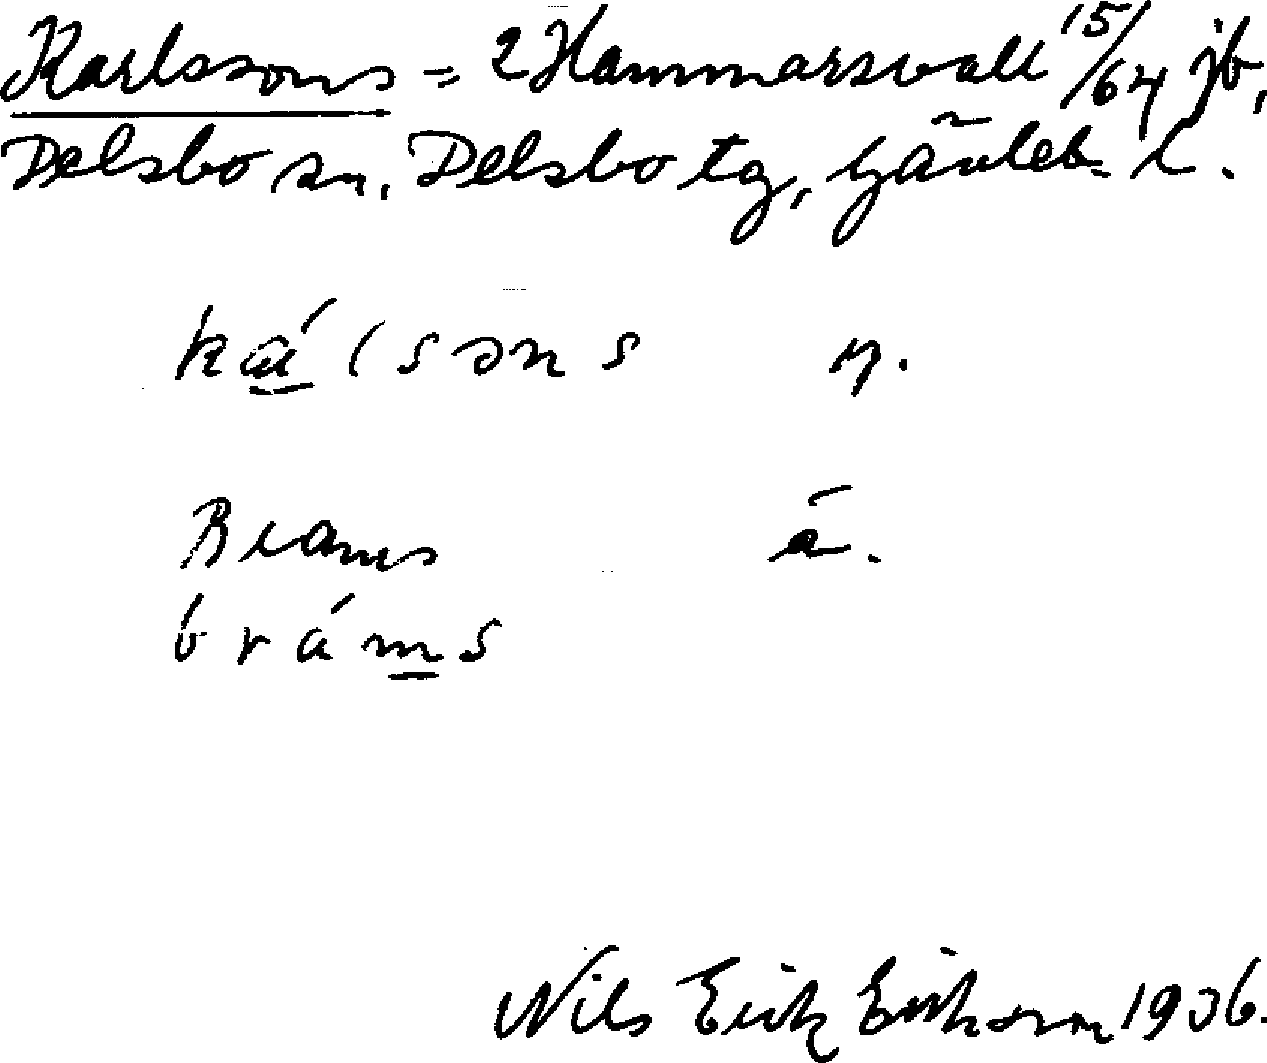 Karlssons = 2 Hammarsvall 15/64 jb,
Delsbo sn, Delsbo tg, Gävleb. l.
ká̲lsəns y.
Brams ä.
brám̲s
Nils Erik 1936.